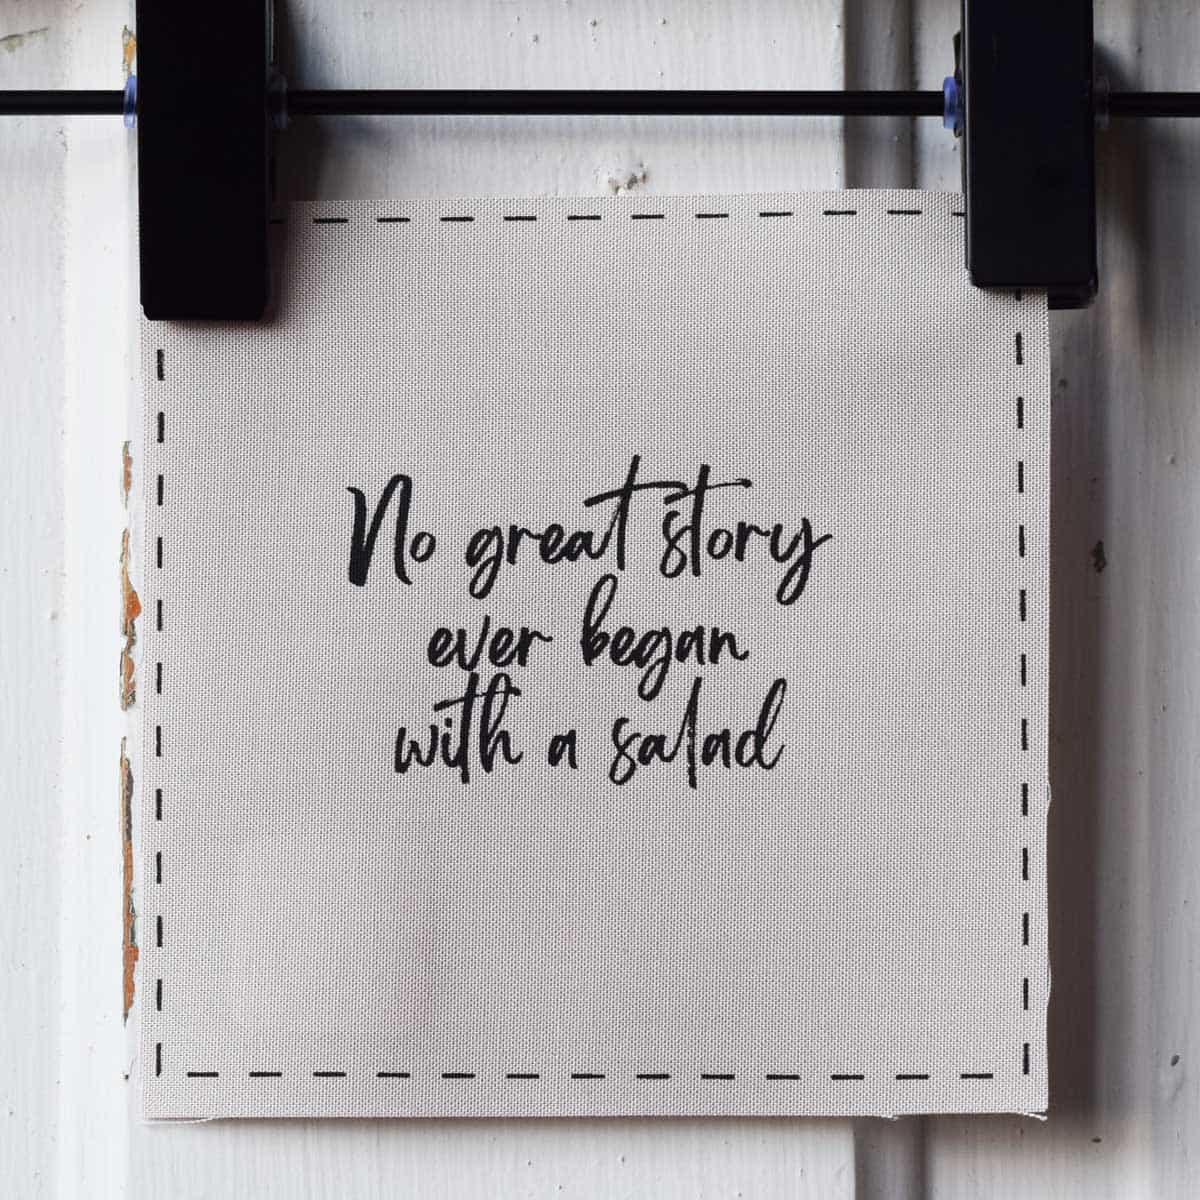 No great story
ever began
with a salad